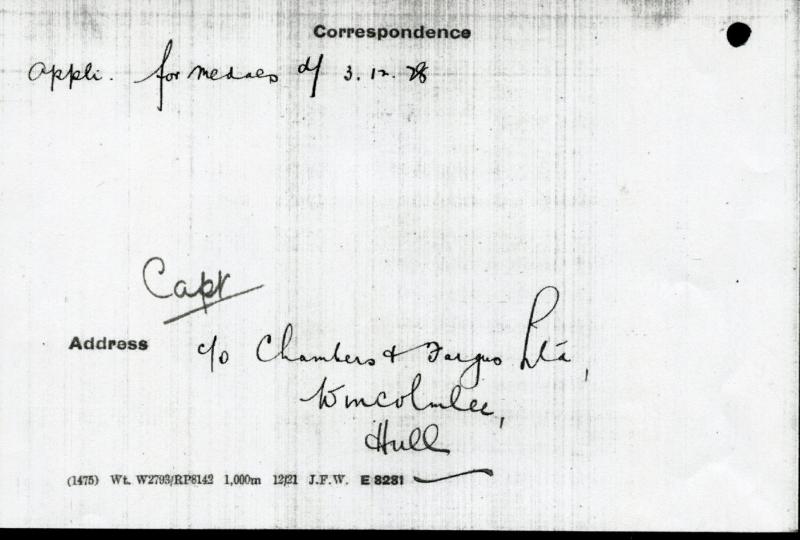 Correspondence
Appli. for medals d/ 3.12.28
Capt
Address c/o Chambers & Fargus Ltd,
Wincolmlee,
Hull
(1475) Wt. W2793/RP8142 1,000m 12/21 J.F.W. E 8281